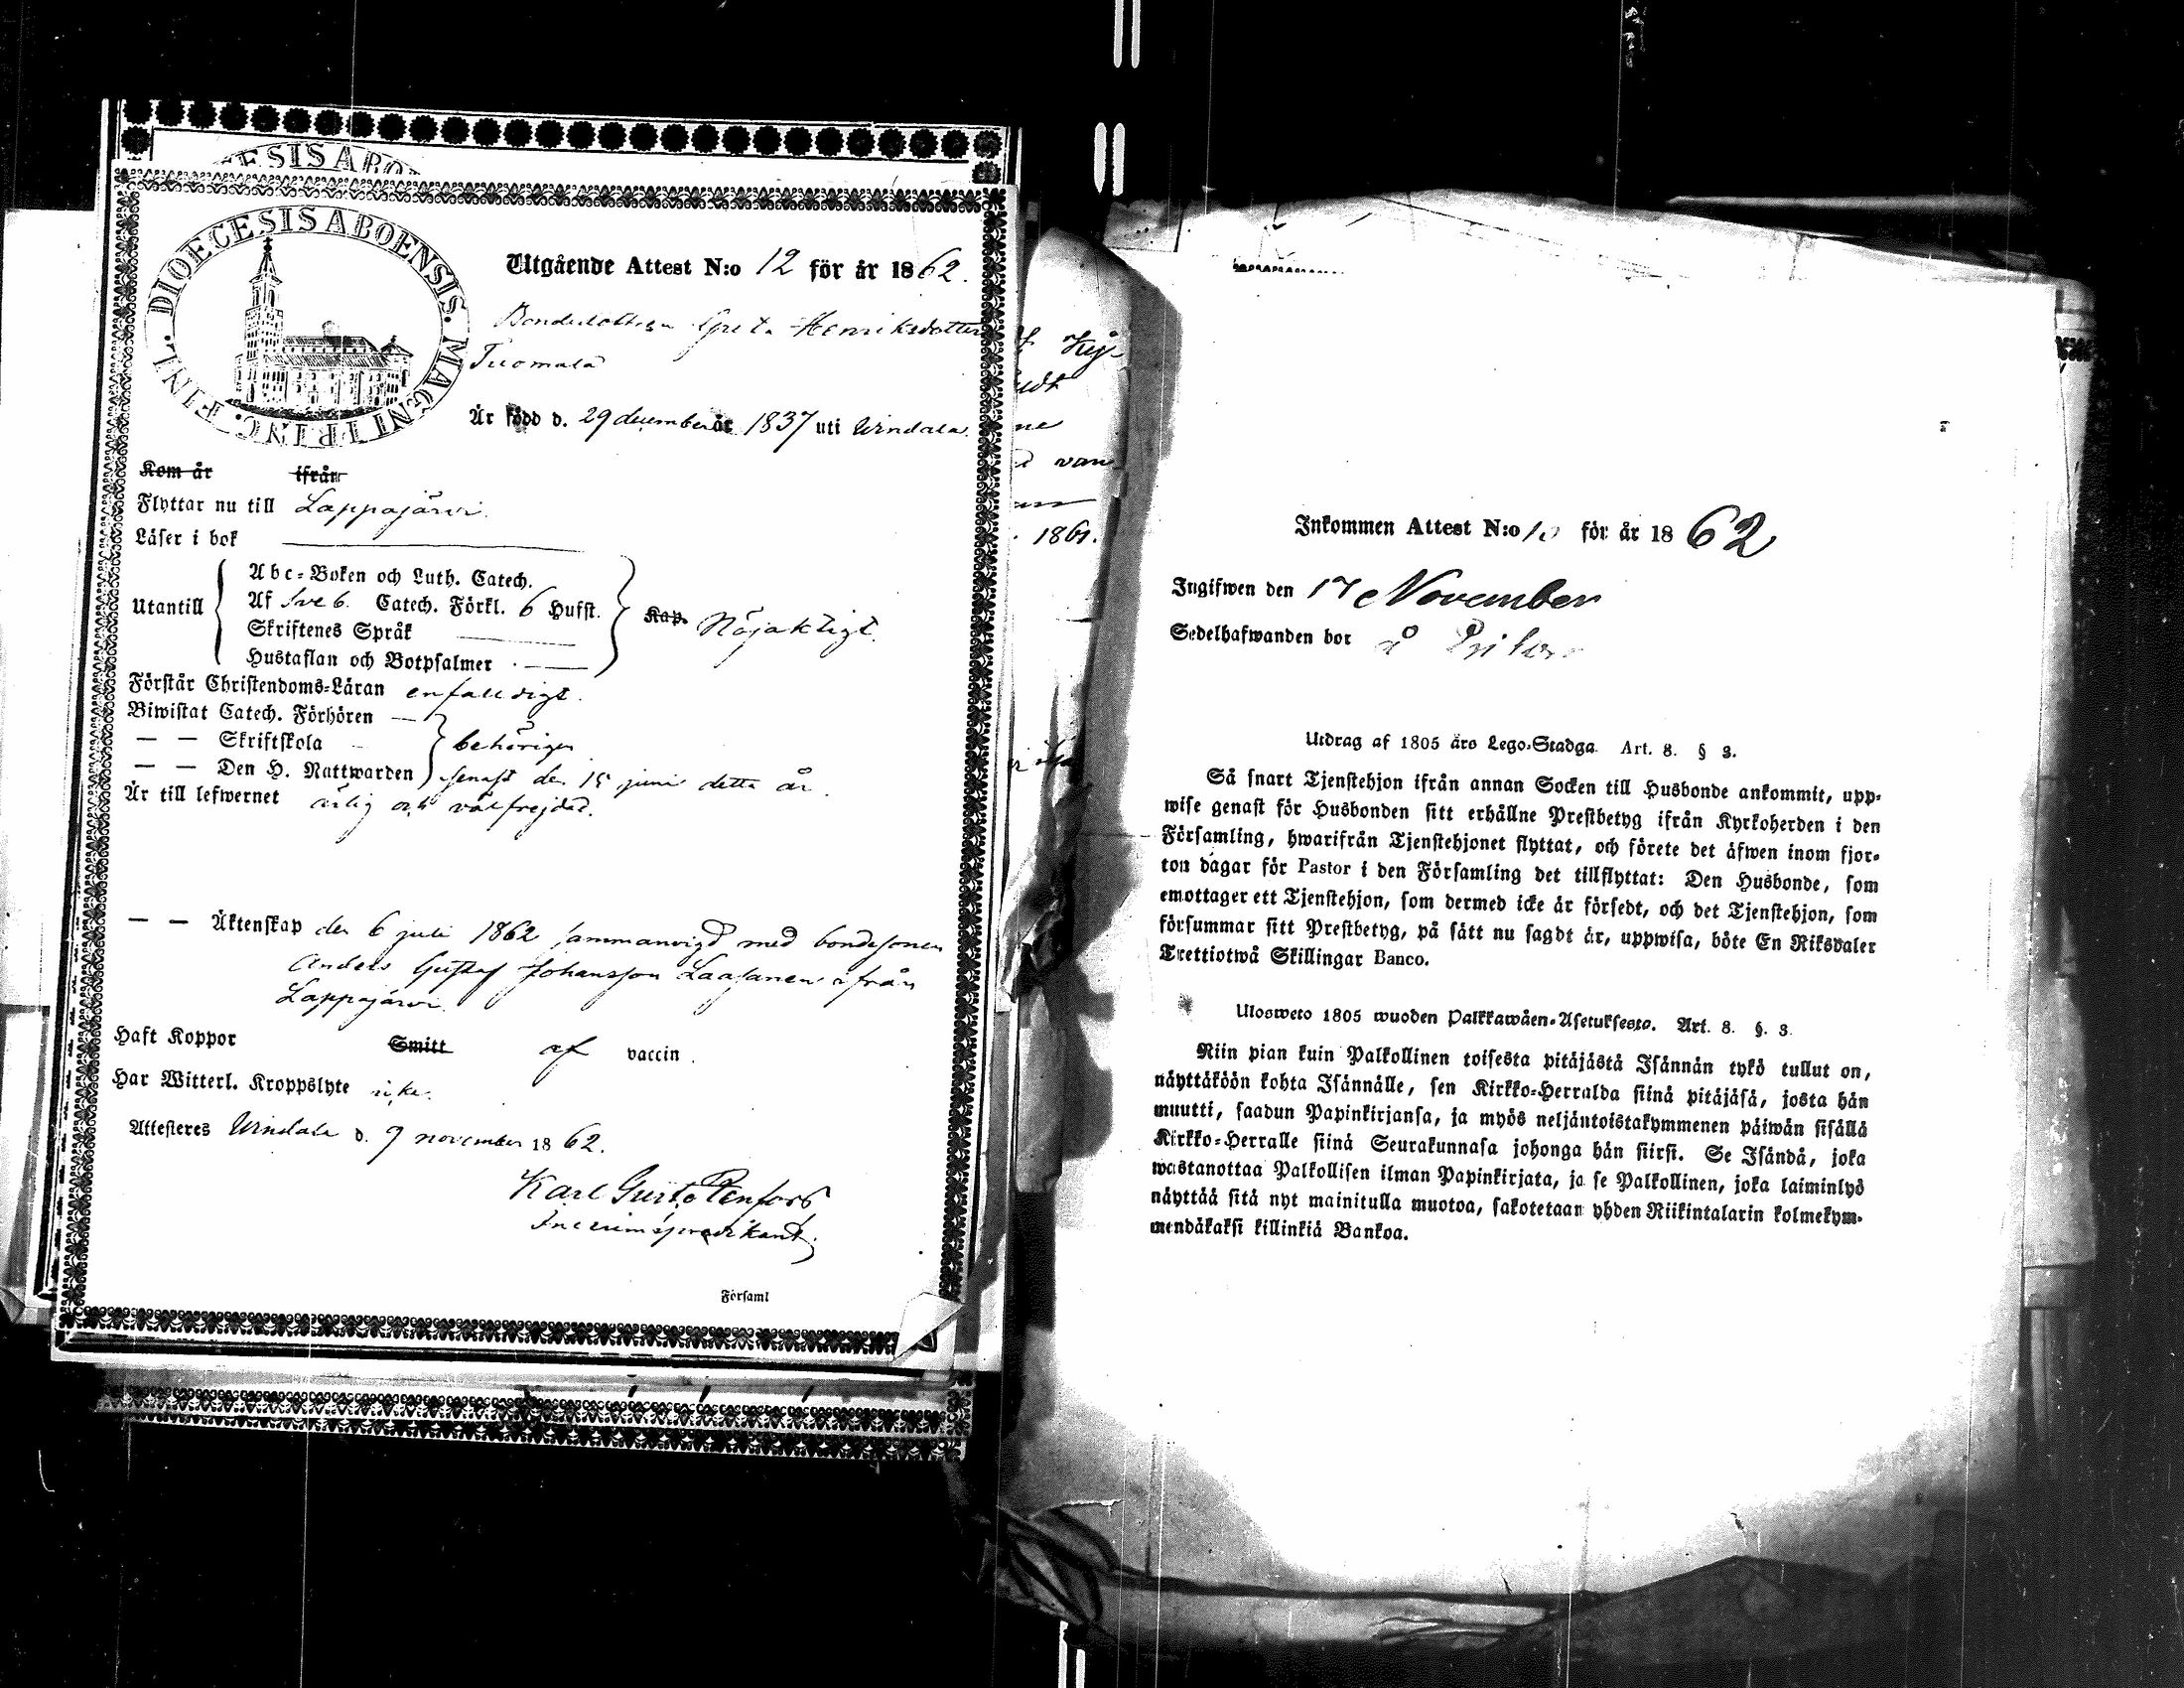 ESIS ABO
DIOECESIS ABOENSIS. MAGNI PRINC. FINL.
Utgående Attest N:o 12 för år 1862.
Bondedottren Greta Henriksdotter
Tuomala
Är född d. 29 december år 1837 uti Windala.
Kom år ifrån
Flyttar nu till Lappajärvi.
Läser i bok
Utantill
Abc-Boken och Luth. Catech.
Af Sveb. Catech. Förkl. 6 Hufst.
Skriftenes Språk
Hustaflan och Botpsalmer
Kap. Nöjaktigt.
Förstår Christendoms-Läran enfalldigt.
Biwistat Catech. Förhören
— — Skriftskola
— — Den H. Nattwarden
behörigen
senast den 15 juni detta år.
Är till lefwernet ärlig och välfrejdad.
— — Äktenskap den 6 juli 1862 sammanvigd med bondesonen
Anders Gustaf Johansson Laasanen ifrån
Lappajärvi.
Haft Koppor Smitt af vaccin.
Har Witterl. Kroppslyte icke.
Attesteres Windala d. 9 november 1862.
Karl Gust.
Interimspredikant.
Församl
1861.
Inkommen Attest N:o för år 1862
Ingifwen den 17 November
Sedelhafwanden bor å
Utdrag af 1805 års Lego-Stadga. Art. 8. § 3.
Så snart Tjenstehjon ifrån annan Socken till Husbonde ankommit, upp-
wise genast för Husbonden sitt erhållne Prestbetyg ifrån Kyrkoherden i den
Församling, hwarifrån Tjenstehjonet flyttat, och förete det äfwen inom fjor-
ton dagar för Pastor i den Församling det tillflyttat: Den Husbonde, som
emottager ett Tjenstehjon, som dermed icke är försedt, och det Tjenstehjon, som
försummar sitt Prestbetyg, på sätt nu sagdt är, uppwisa, böte En Riksdaler
Trettiotwå Skillingar Banco.
Ulosweto 1805 wuoden Palkkawäen-Asetuksesta. Art. 8. §. 3.
Niin pian kuin Palkollinen toisesta pitäjästä Isännän tykö tullut on,
näyttäköön kohta Isännälle, sen Kirkko-Herralda siinä pitäjäsä, josta hän
muutti, saadun Papinkirjansa, ja myös neljäntoistakymmenen päiwän sisällä
Kirkko-Herralle siinä Seurakunnasa johonga hän siirsi. Se Isändä, joka
wastanottaa Palkollisen ilman Papinkirjata, ja se Palkollinen, joka laiminlyö
näyttää sitä nyt mainitulla muotoa, sakotetaan yhden Riikintalarin kolmekym-
mendäkaksi killinkiä Bankoa.